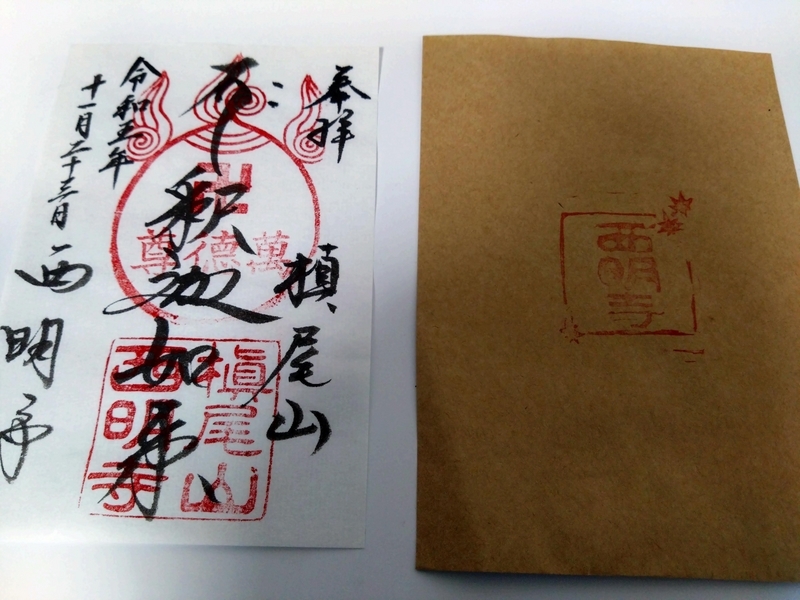 奉拝
槙尾山
釈迦如来
令和五年
十一月二十三日
西明寺
萬德尊
槇尾山
西明寺
西明寺